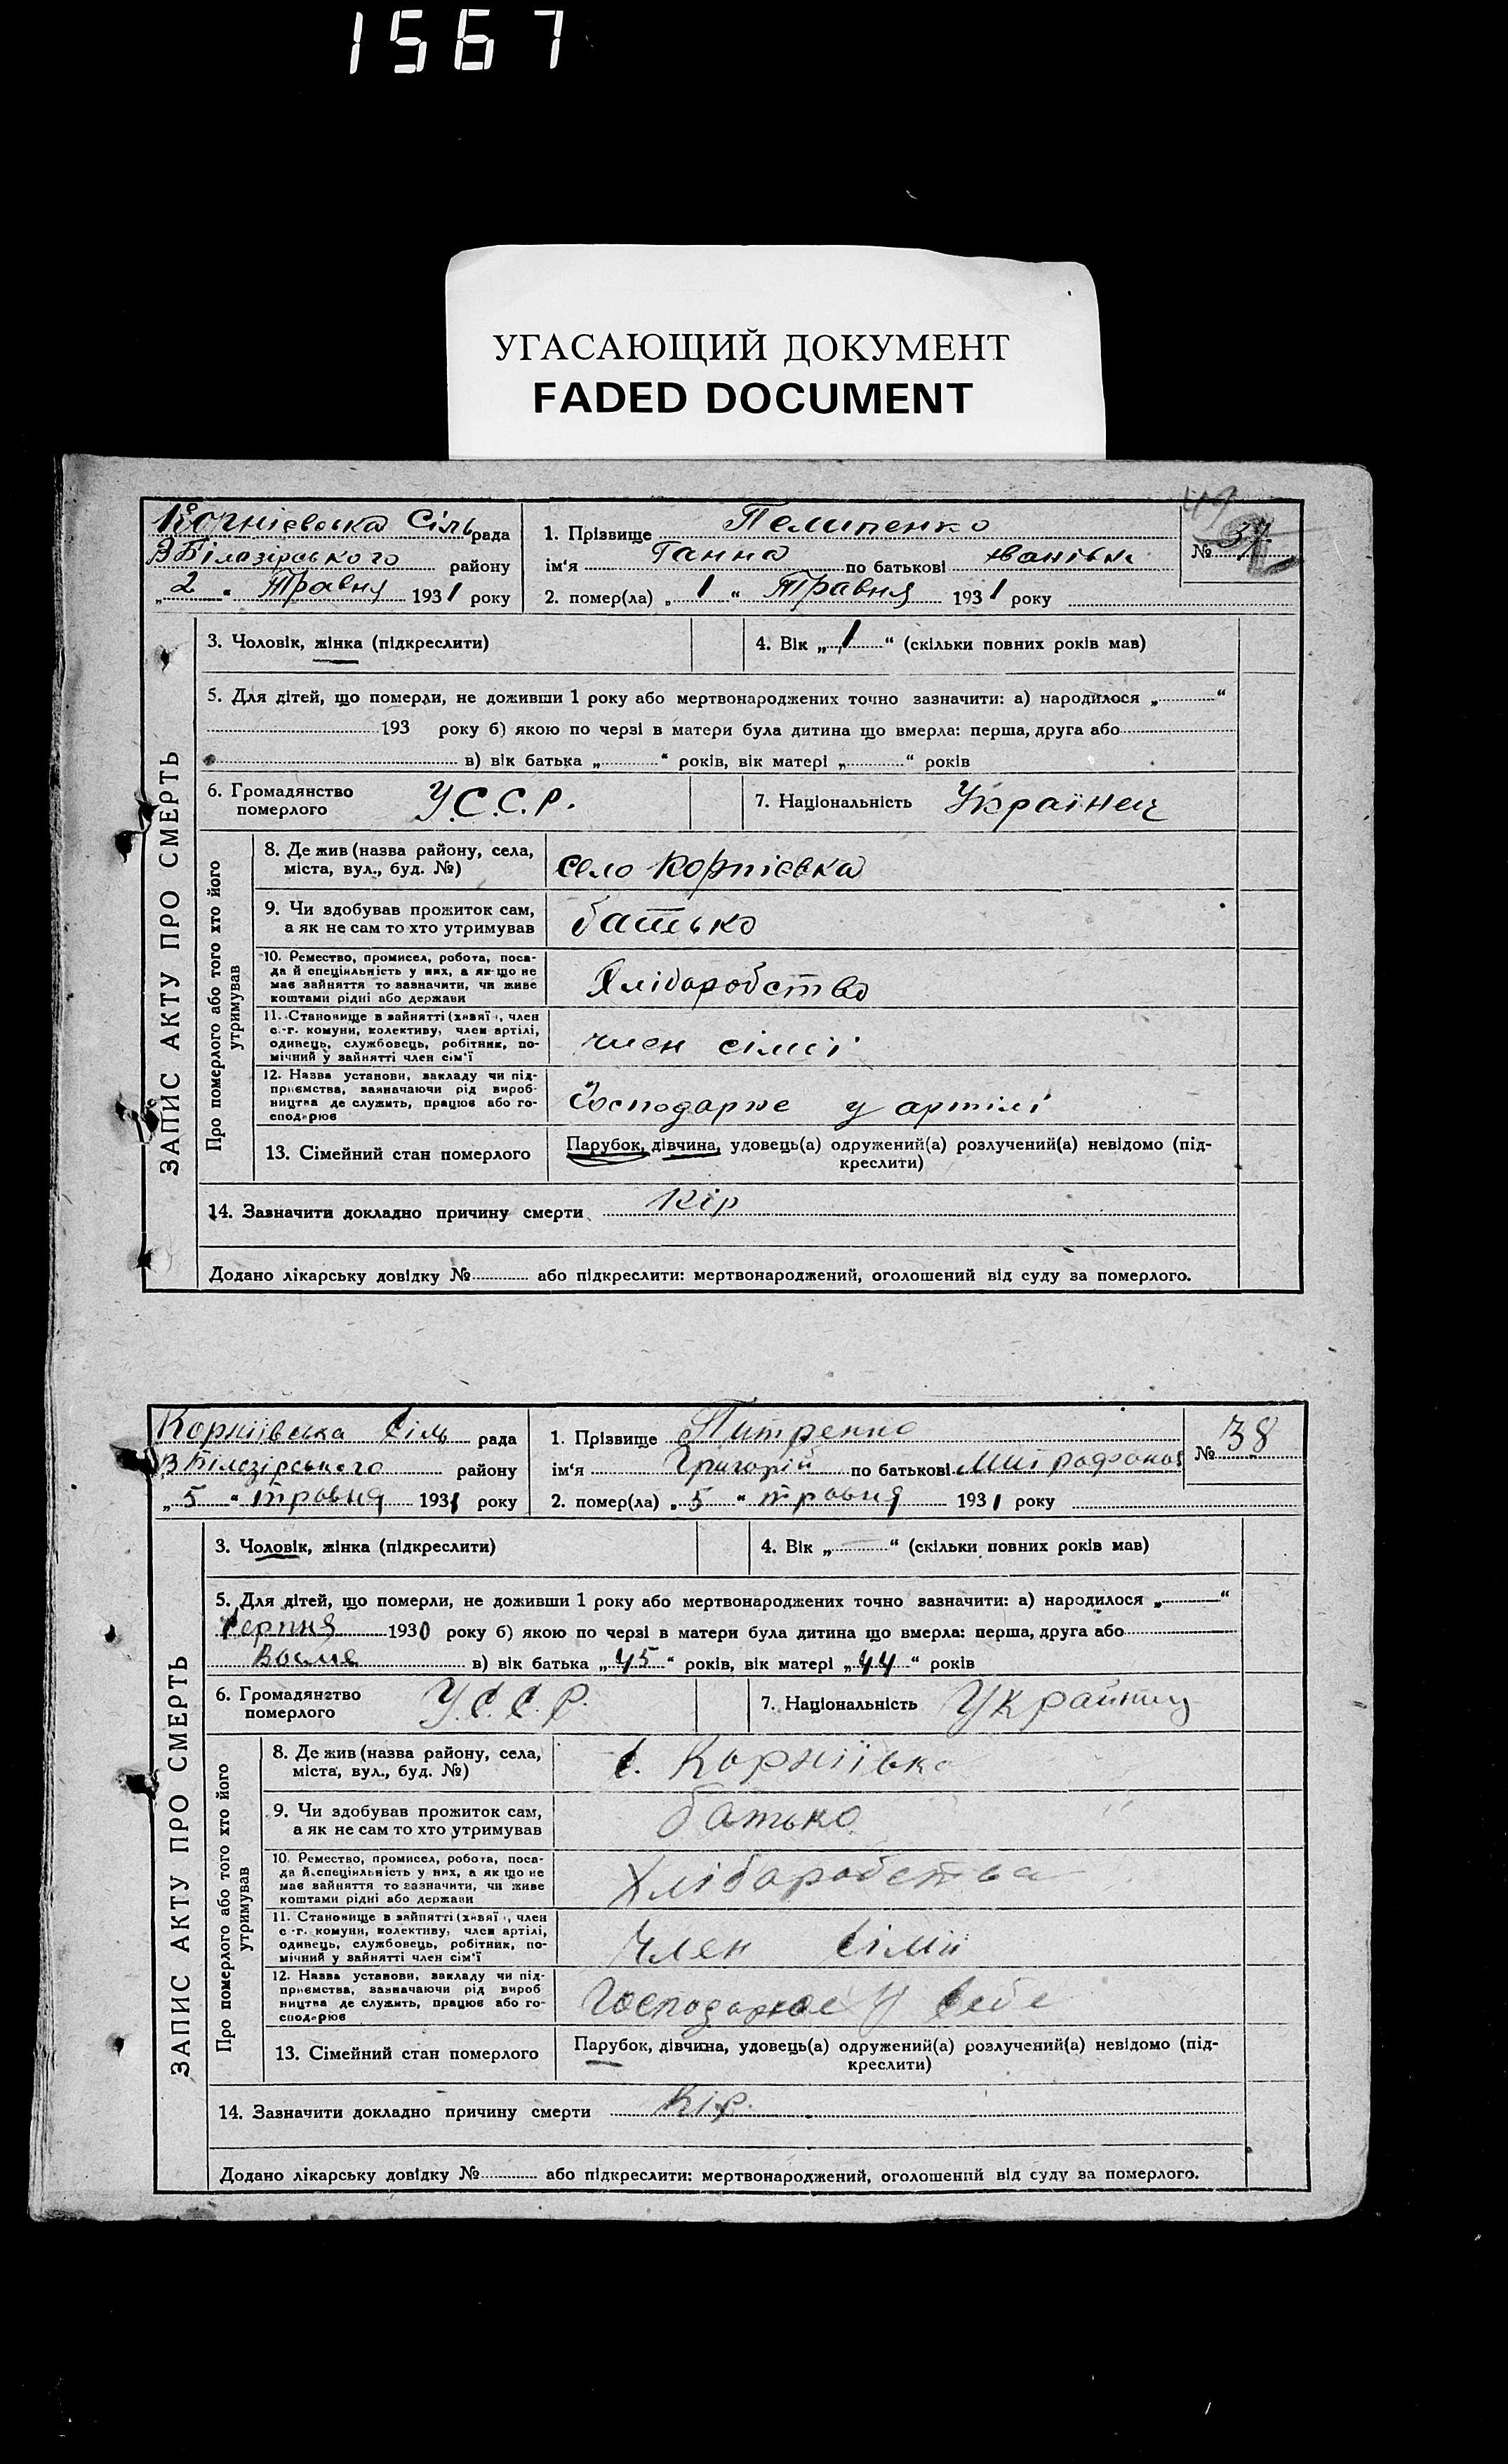 1567
УГАСАЮЩИЙ ДОКУМЕНТ
FADED DOCUMENT
Корнієвська Сіль рада
В Білазірського району
„ 2 “ Травня 1931 року
1. Прізвище Пелипенко
ім'я Ганна по батькові Іванівн
2. помер(ла) „ 1 “ Травня 1931 року
№ 37
3. Чоловік, жінка (підкреслити)
4. Вік „ 1 “ (скільки повних років мав)
5. Для дітей, що померли, не доживши 1 року або мертвонароджених точно зазначити: а) народилося „ “
193 року б) якою по черзі в матери була дитина що вмерла: перша, друга або
в) вік батька „ “ років, вік матері „ “ років
6. Громадянство
померлого У.С.С.Р.
7. Національність Українец
ЗАПИС АКТУ ПРО СМЕРТЬ
Про померлого або того хто його
утримував
8. Де жив (назва району, села,
міста, вул., буд. №) село Корнієвка
9. Чи здобував прожиток сам,
а як не сам то хто утримував батько
10. Ремество, промисел, робота, поса-
да й спеціяльність у них, а як що не
має зайняття то зазначити, чи живе
коштами рідні або держави Хлібаробство
11. Становище в зайнятті (хазяї , член
с.-г. комуни, колективу, член артілі,
одинець, службовець, робітник, по-
мічний у зайнятті член сім'ї член сімії
12. Назва установи, закладу чи під-
приємства, зазначаючи рід вироб-
ництва де служить, працює або го-
сподарює Господарює у артілі
13. Сімейний стан померлого
Парубок, дівчина, удовець(а) одружений(а) розлучений(а) невідомо (під-
креслити)
14. Зазначити докладно причину смерти Кір
Додано лікарську довідку № або підкреслити: мертвонароджений, оголошений від суду за померлого.
Корніївська Сіль рада
В Білезірського району
„ 5 “ травня 1931 року
1. Прізвище Питренко
ім'я Григорій по батькові Митрофанов
2. помер(ла) „ 5 “ травня 1931 року
№ 38
3. Чоловік, жінка (підкреслити)
4. Вік „ “ (скільки повних років мав)
5. Для дітей, що померли, не доживши 1 року або мертвонароджених точно зазначити: а) народилося „ “
Серпня 1930 року б) якою по черзі в матери була дитина що вмерла: перша, друга або
Восме в) вік батька „ 45 “ років, вік матері „ 44 “ років
6. Громадянство
померлого У.С.С.Р.
7. Національність Украйниц
ЗАПИС АКТУ ПРО СМЕРТЬ
Про померлого або того хто його
утримував
8. Де жив (назва району, села,
міста, вул., буд. №) С. Корніївка
9. Чи здобував прожиток сам,
а як не сам то хто утримував батько
10. Ремество, промисел, робота, поса-
да й спеціяльність у них, а як що не
має зайняття то зазначити, чи живе
коштами рідні або держави Хлібаробства
11. Становище в зайнятті (хазяї , член
с -г. комуни, колективу, член артілі,
одинець, службовець, робітник, по-
мічний у зайнятті член сім'ї Член Сімії
12. Назва установи, закладу чи під-
приємства, зазначаючи рід вироб
ництва де служить, працює або го-
сподарює Господарює У Себе
13. Сімейний стан померлого
Парубок, дівчина, удовець(а) одружений(а) розлучений(а) невідомо (під-
креслити)
14. Зазначити докладно причину смерти Кір.
Додано лікарську довідку № або підкреслити: мертвонароджений, оголошений від суду за померлого.